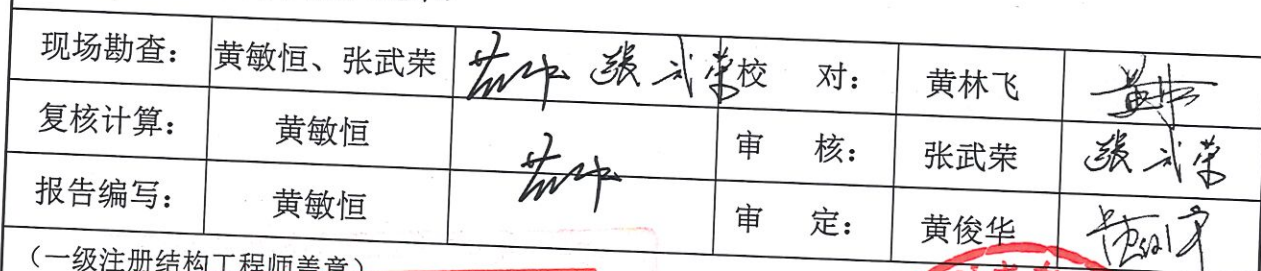 现场勘查： 黄敏恒、张武荣 张武荣 校 对： 黄林飞
复核计算： 黄敏恒 审 核： 张武荣 张武荣
报告编写： 黄敏恒 审 定： 黄俊华
（一级注册结构工程师盖章）